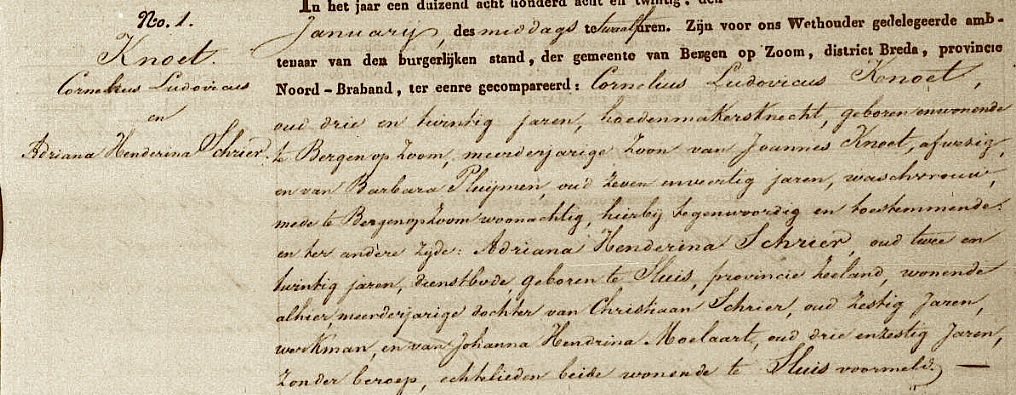 No. 1.
Knoet.
Cornelius Ludovicus
en
Adriana Henderina Schrier.
In het jaar een duizend acht honderd acht en twintig, den
Januarij, des middags te twaalf uren. Zijn voor ons Wethouder gedelegeerde amb-
tenaar van den burgerlijken stand, der gemeente van Bergen op Zoom, district Breda, provincie
Noord-Braband, ter eenre gecompareerd: Cornelius Ludovicus Knoet,
oud drie en twintig jaren, hoedenmakersknecht, geboren en wonende
te Bergen op Zoom, meerderjarige Zoon van Joannes Knoet, afwezig,
en van Barbara Pluijmen, oud zeven en veertig jaren, waschvrouw,
mede te Bergen op Zoom woonachtig, hierbij tegenwoordig en toestemmende.
en ter andere zijde: Adriana Henderina Schrier, oud twee en
twintig jaren, dienstbode, geboren te Sluis, provincie Zeeland, wonende
alhier, meerderjarige dochter van Christiaan Schrier, oud zestig Jaren,
werkman, en van Johanna Hendrina Moelaart, oud drie en zestig Jaren,
zonder beroep, echtelieden beide wonende te Sluis voormeld.